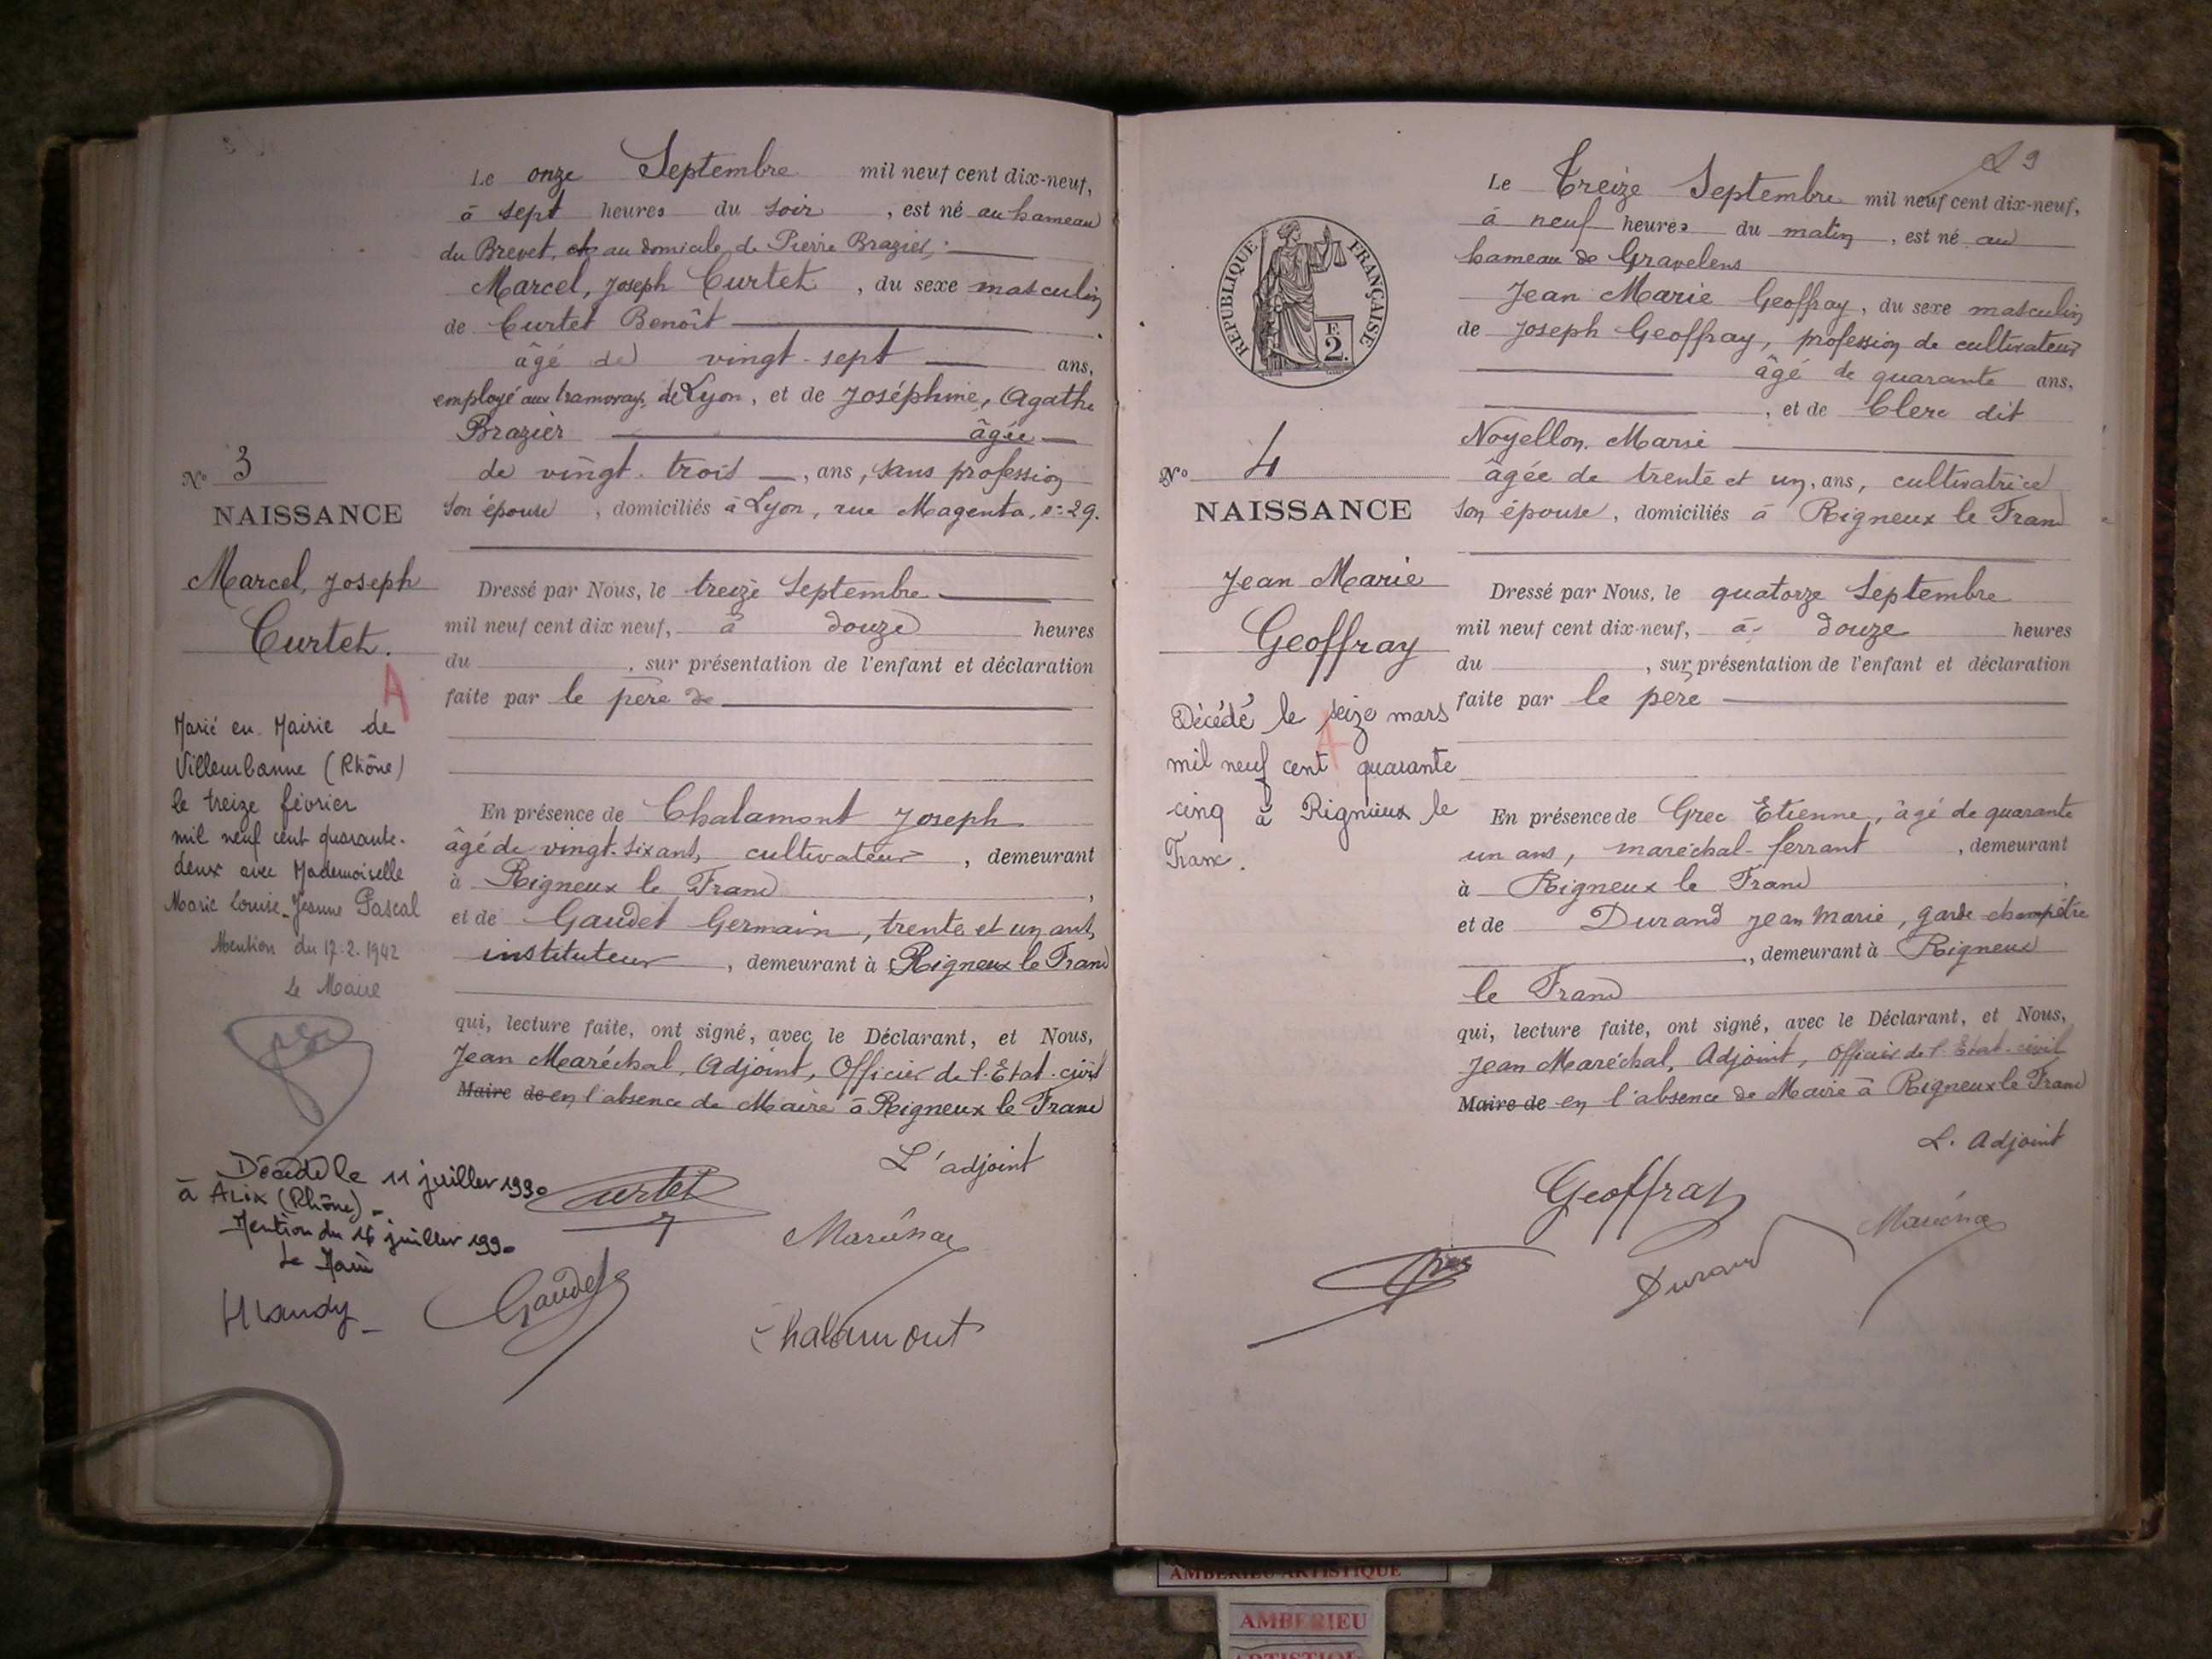 Le onze Septembre mil neuf cent dix-neuf,
à sept heures du soir, est né au hameau
du Brevet, au domicile de Pierre Brazier,
Marcel, Joseph Curtet, du sexe masculin
de Curtet Benoît
âgé de vingt-sept ans,
employé aux tramways de Lyon, et de Joséphine, Agathe
Brazier âgée
de vingt-trois, ans, sans profession
son épouse, domiciliés à Lyon, rue Magenta, n: 29.
No 3
NAISSANCE
Marcel, Joseph
Curtet.
A
Dressé par Nous, le treize Septembre
mil neuf cent dix neuf, à douze heures
du , sur présentation de l'enfant et déclaration
faite par le père de
En présence de Chalamont Joseph
âgé de vingt-six ans, cultivateur, demeurant
à Rigneux le Franc,
et de Gaudet Germain, trente et un ans,
instituteur, demeurant à Rigneux le Franc
qui, lecture faite, ont signé, avec le Déclarant, et Nous,
Jean Maréchal, Adjoint, Officier de l'Etat-civil
Maire de en l'absence de Maire à Rigneux le Franc
L'adjoint
Marié en Mairie de
Villeurbanne (Rhône)
le treize février
mil neuf cent quarante-
deux avec Mademoiselle
Marie Louise-Jeanne Pascal
Mention du 17-2-1942
Le Maire
Décédé le 11 juillet 1990
à ALIX (Rhône)-
Mention du 16 juillet 1990
Le Maire
Curtet
Gaudet
Chalamont
29
REPUBLIQUE FRANÇAISE
F.
2.
Le Treize Septembre mil neuf cent dix-neuf,
à neuf heures du matin, est né au
hameau de Gravelens
Jean Marie Geoffray, du sexe masculin
de Joseph Geoffray, profession de cultivateur
âgé de quarante ans,
, et de Clerc dit
Noyellon Marie
âgée de trente et un, ans, cultivatrice
son épouse, domiciliés à Rigneux le Franc
No 4
NAISSANCE
Jean Marie
Geoffray
A
Décédé le seize mars
mil neuf cent quarante
cinq à Rignieux le
Franc.
Dressé par Nous, le quatorze Septembre
mil neuf cent dix-neuf, à douze heures
du , sur présentation de l'enfant et déclaration
faite par le père
En présence de Grec Etienne, âgé de quarante
un ans, maréchal-ferrant, demeurant
à Rigneux le Franc,
et de Durand Jean Marie, garde champêtre
, demeurant à Rigneux
le Franc
qui, lecture faite, ont signé, avec le Déclarant, et Nous,
Jean Maréchal, Adjoint, Officier de l'Etat-civil
Maire de en l'absence de Maire à Rigneux le Franc
L'Adjoint
Geoffray
Durand
AMBERIEU ARTISTIQUE
AMBERIEU